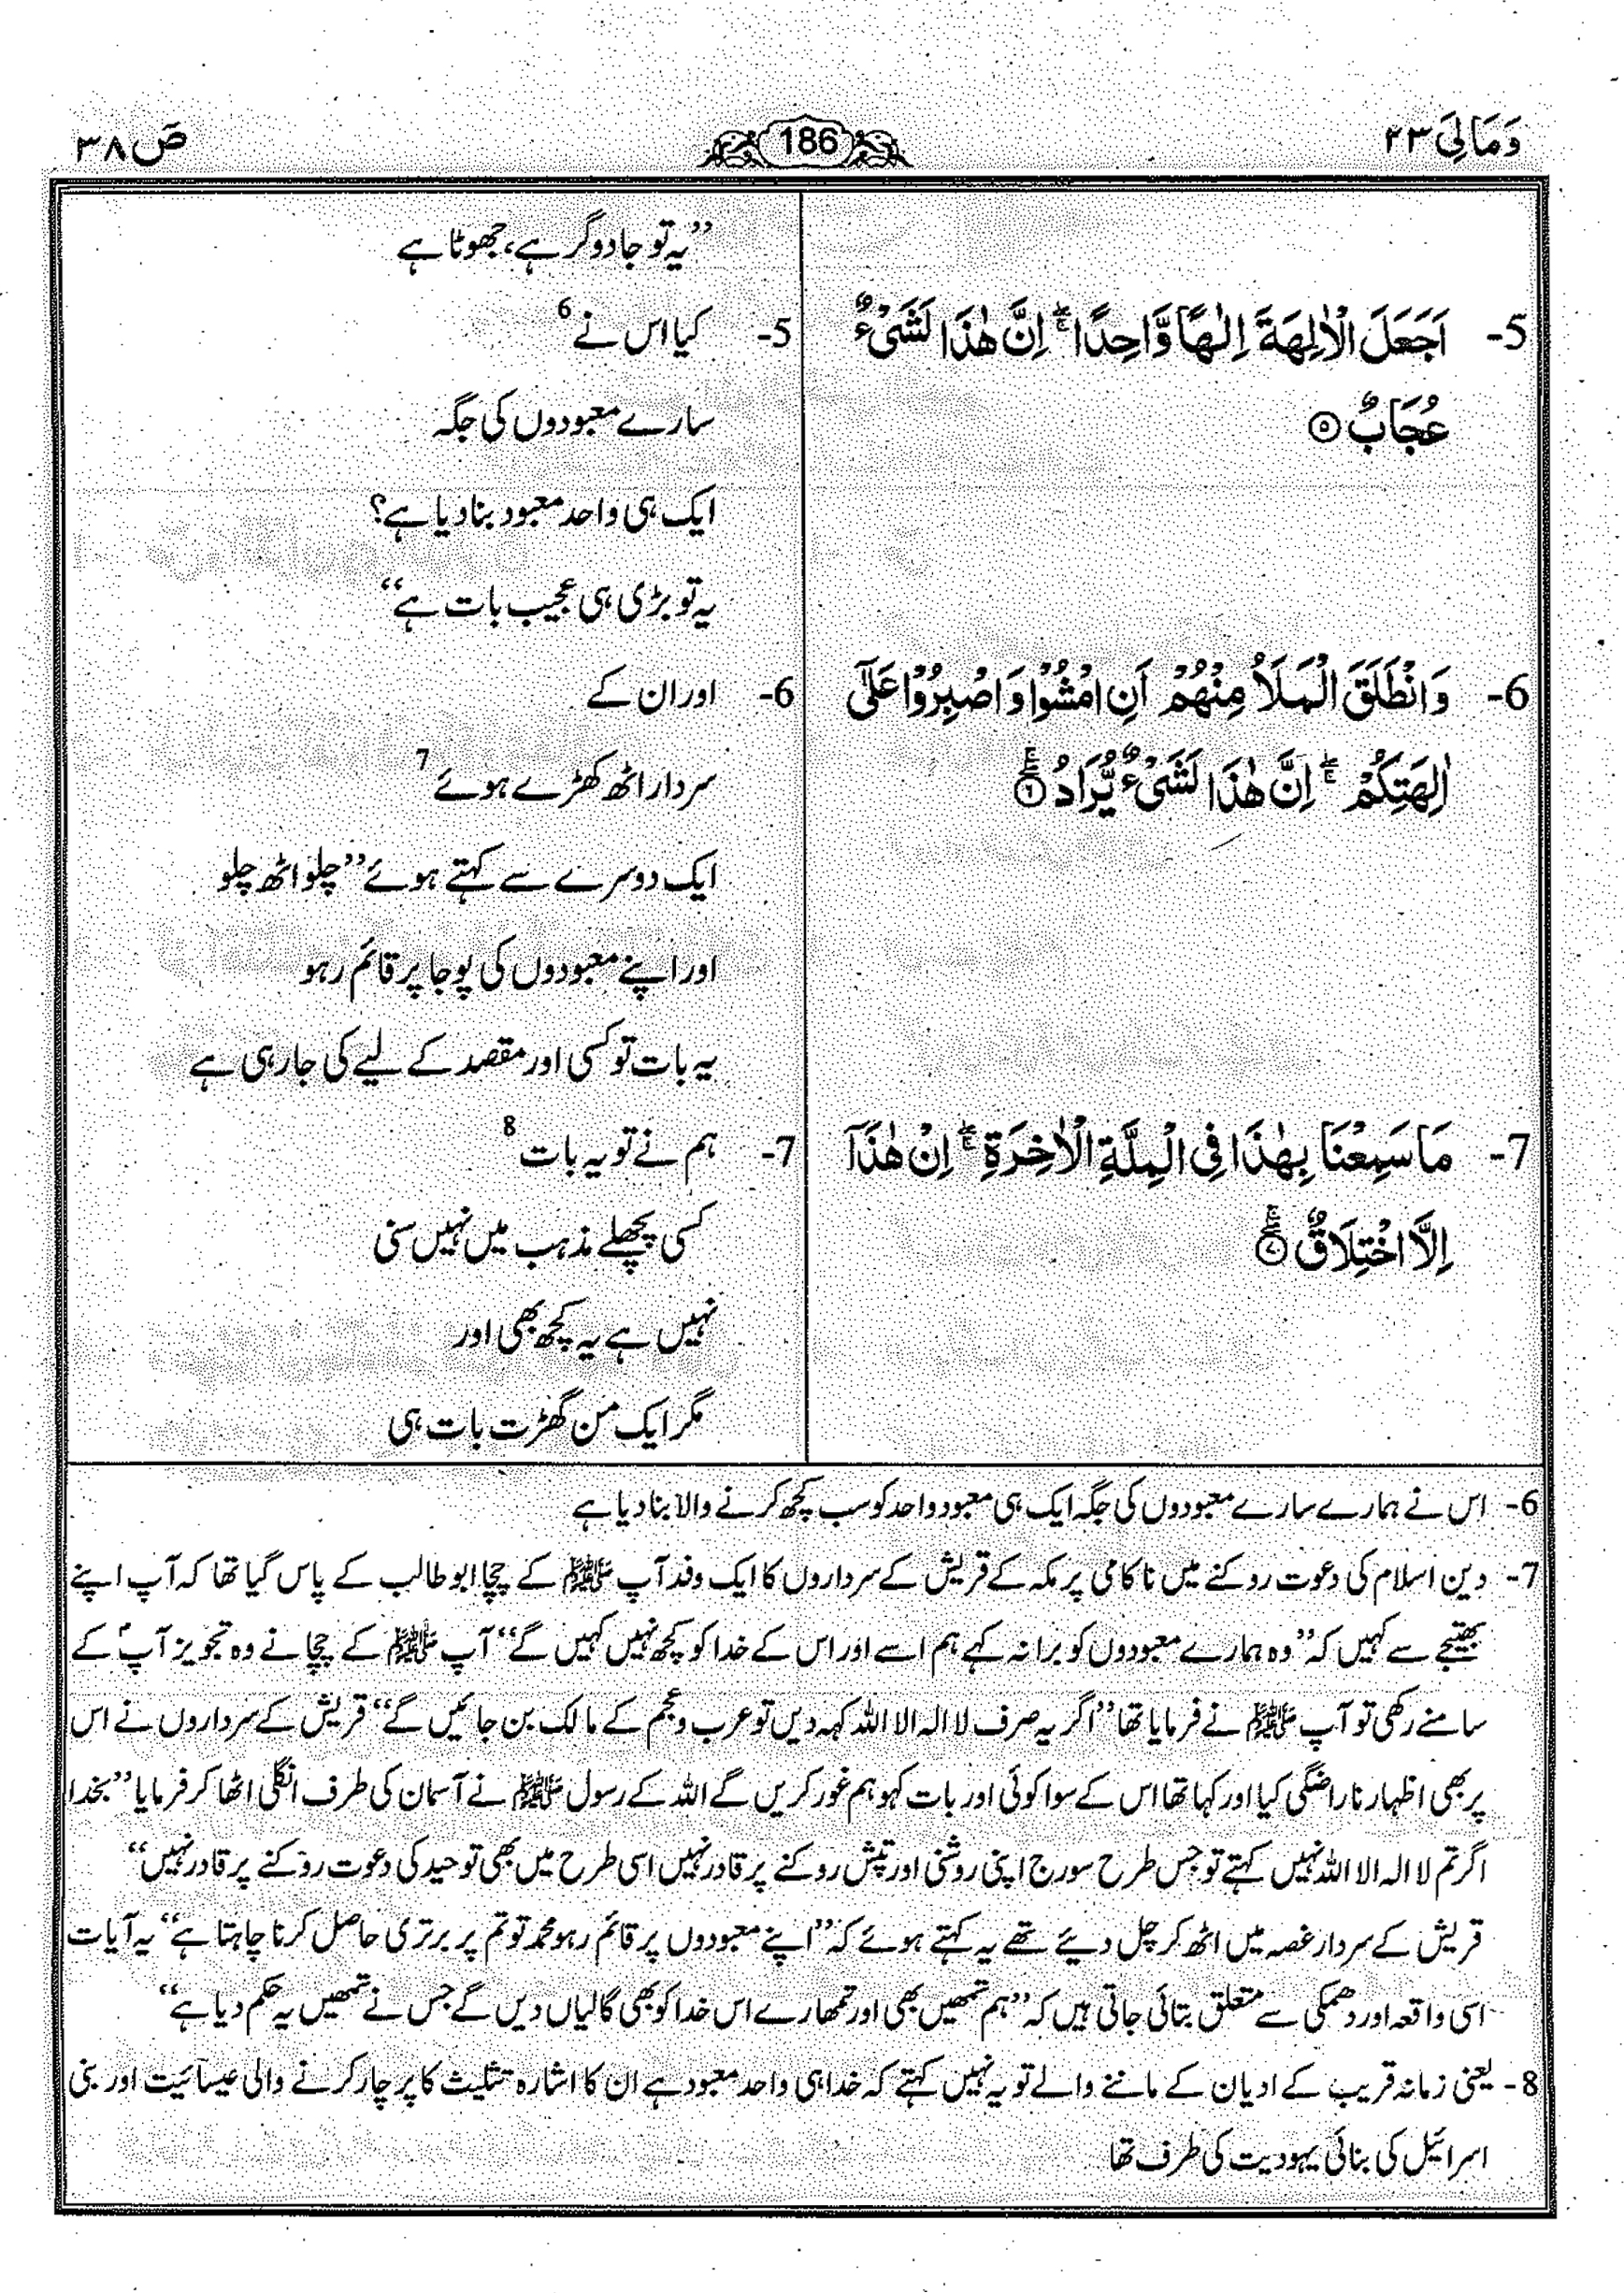 وَمَالِیَ ٢٣
186
صٓ ٣٨
اَجَعَلَ الْاٰلِهَةَ اِلٰهًا وَّاحِدًا ۚۖ اِنَّ هٰذَا لَشَیْءٌ -5
عُجَابٌ ۝٥
وَانْطَلَقَ الْمَلَاُ مِنْهُمْ اَنِ امْشُوْا وَاصْبِرُوْا عَلٰۤی -6
اٰلِهَتِكُمْ ۚۖ اِنَّ هٰذَا لَشَیْءٌ یُّرَادُ ۝٦
مَا سَمِعْنَا بِهٰذَا فِی الْمِلَّةِ الْاٰخِرَةِ ۚۖ اِنْ هٰذَاۤ -7
اِلَّا اخْتِلَاقٌ ۝٧
”یہ تو جادوگر ہے، جھوٹا ہے
5- کیا اس نے 6
سارے معبودوں کی جگہ
ایک ہی واحد معبود بنا دیا ہے؟
یہ تو بڑی ہی عجیب بات ہے“
6- اور ان کے
سردار اٹھ کھڑے ہوئے 7
ایک دوسرے سے کہتے ہوئے ”چلو اٹھ چلو
اور اپنے معبودوں کی پوجا پر قائم رہو
یہ بات تو کسی اور مقصد کے لیے کی جا رہی ہے
7- ہم نے تو یہ بات 8
کسی پچھلے مذہب میں نہیں سنی
نہیں ہے یہ کچھ بھی اور
مگر ایک من گھڑت بات ہی
6- اس نے ہمارے سارے معبودوں کی جگہ ایک ہی معبود واحد کو سب کچھ کرنے والا بنا دیا ہے
7- دین اسلام کی دعوت روکنے میں ناکامی پر مکہ کے قریش کے سرداروں کا ایک وفد آپ ﷺ کے چچا ابوطالب کے پاس گیا تھا کہ آپ اپنے
بھتیجے سے کہیں کہ ”وہ ہمارے معبودوں کو برا نہ کہے ہم اسے اور اس کے خدا کو کچھ نہیں کہیں گے“ آپ ﷺ کے چچا نے وہ تجویز آپؐ کے
سامنے رکھی تو آپ ﷺ نے فرمایا تھا ”اگر یہ صرف لا الہ الا اللہ کہہ دیں تو عرب و عجم کے مالک بن جائیں گے“ قریش کے سرداروں نے اس
پر بھی اظہار ناراضگی کیا اور کہا تھا اس کے سوا کوئی اور بات کہو ہم غور کریں گے اللہ کے رسول ﷺ نے آسمان کی طرف انگلی اٹھا کر فرمایا ”بخدا
اگر تم لا الہ الا اللہ نہیں کہتے تو جس طرح سورج اپنی روشنی اور تپش روکنے پر قادر نہیں اسی طرح میں بھی توحید کی دعوت روکنے پر قادر نہیں“
قریش کے سردار غصہ میں اٹھ کر چل دیئے تھے یہ کہتے ہوئے کہ ”اپنے معبودوں پر قائم رہو محمد تو تم پر برتری حاصل کرنا چاہتا ہے“ یہ آیات
اسی واقعہ اور دھمکی سے متعلق بتائی جاتی ہیں کہ ”ہم تمھیں بھی اور تمھارے اس خدا کو بھی گالیاں دیں گے جس نے تمھیں یہ حکم دیا ہے“
8- یعنی زمانہ قریب کے ادیان کے ماننے والے تو یہ نہیں کہتے کہ خدا ہی واحد معبود ہے ان کا اشارہ تثلیث کا پرچار کرنے والی عیسائیت اور بنی
اسرائیل کی بنائی یہودیت کی طرف تھا